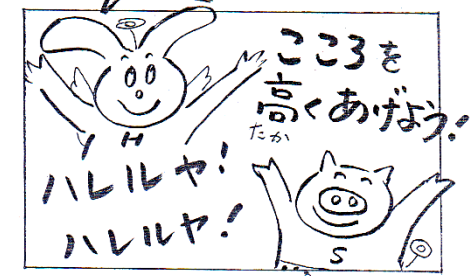 こころを
高くあげよう!
たか
ハレルヤ!
ハレルヤ!
H
S